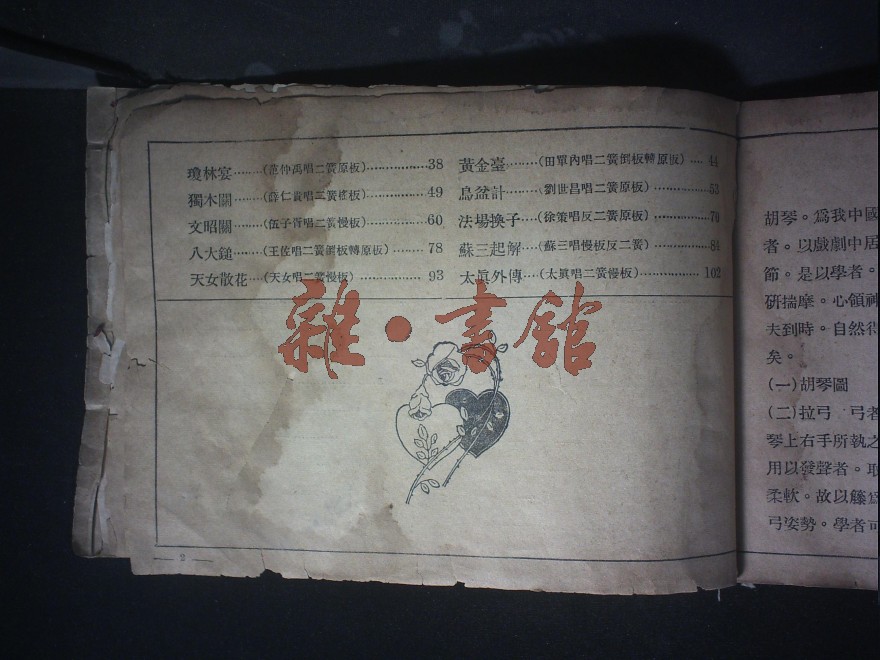 瓊林宴……(范仲禹唱二簧原板)……………38
黃金臺……(田單內唱二簧倒板轉原板)…44
獨木關……(薛仁貴唱二簧搖板)……………49
烏盆計……(劉世昌唱二簧原板)……………53
文昭關……(伍子胥唱二簧慢板)……………60
法塲換子…(徐策唱反二簧原板)……………70
八大鎚……(王佐唱二簧倒板轉原板)………78
蘇三起解…(蘇三唱慢板反二簧)……………
天女散花…(天女唱二簧慢板)………………93
太眞外傳…(太眞唱二簧慢板)………………102
雜·書舘
— 2 —
胡琴。爲我中國
者。以戲劇中居
節。是以學者。
研揣摩。心領神
夫到時。自然得
矣。
(一)胡琴圖
(二)拉弓 弓者
琴上右手所執之
用以發聲者。取
柔軟。故以籐爲
弓姿勢。學者可